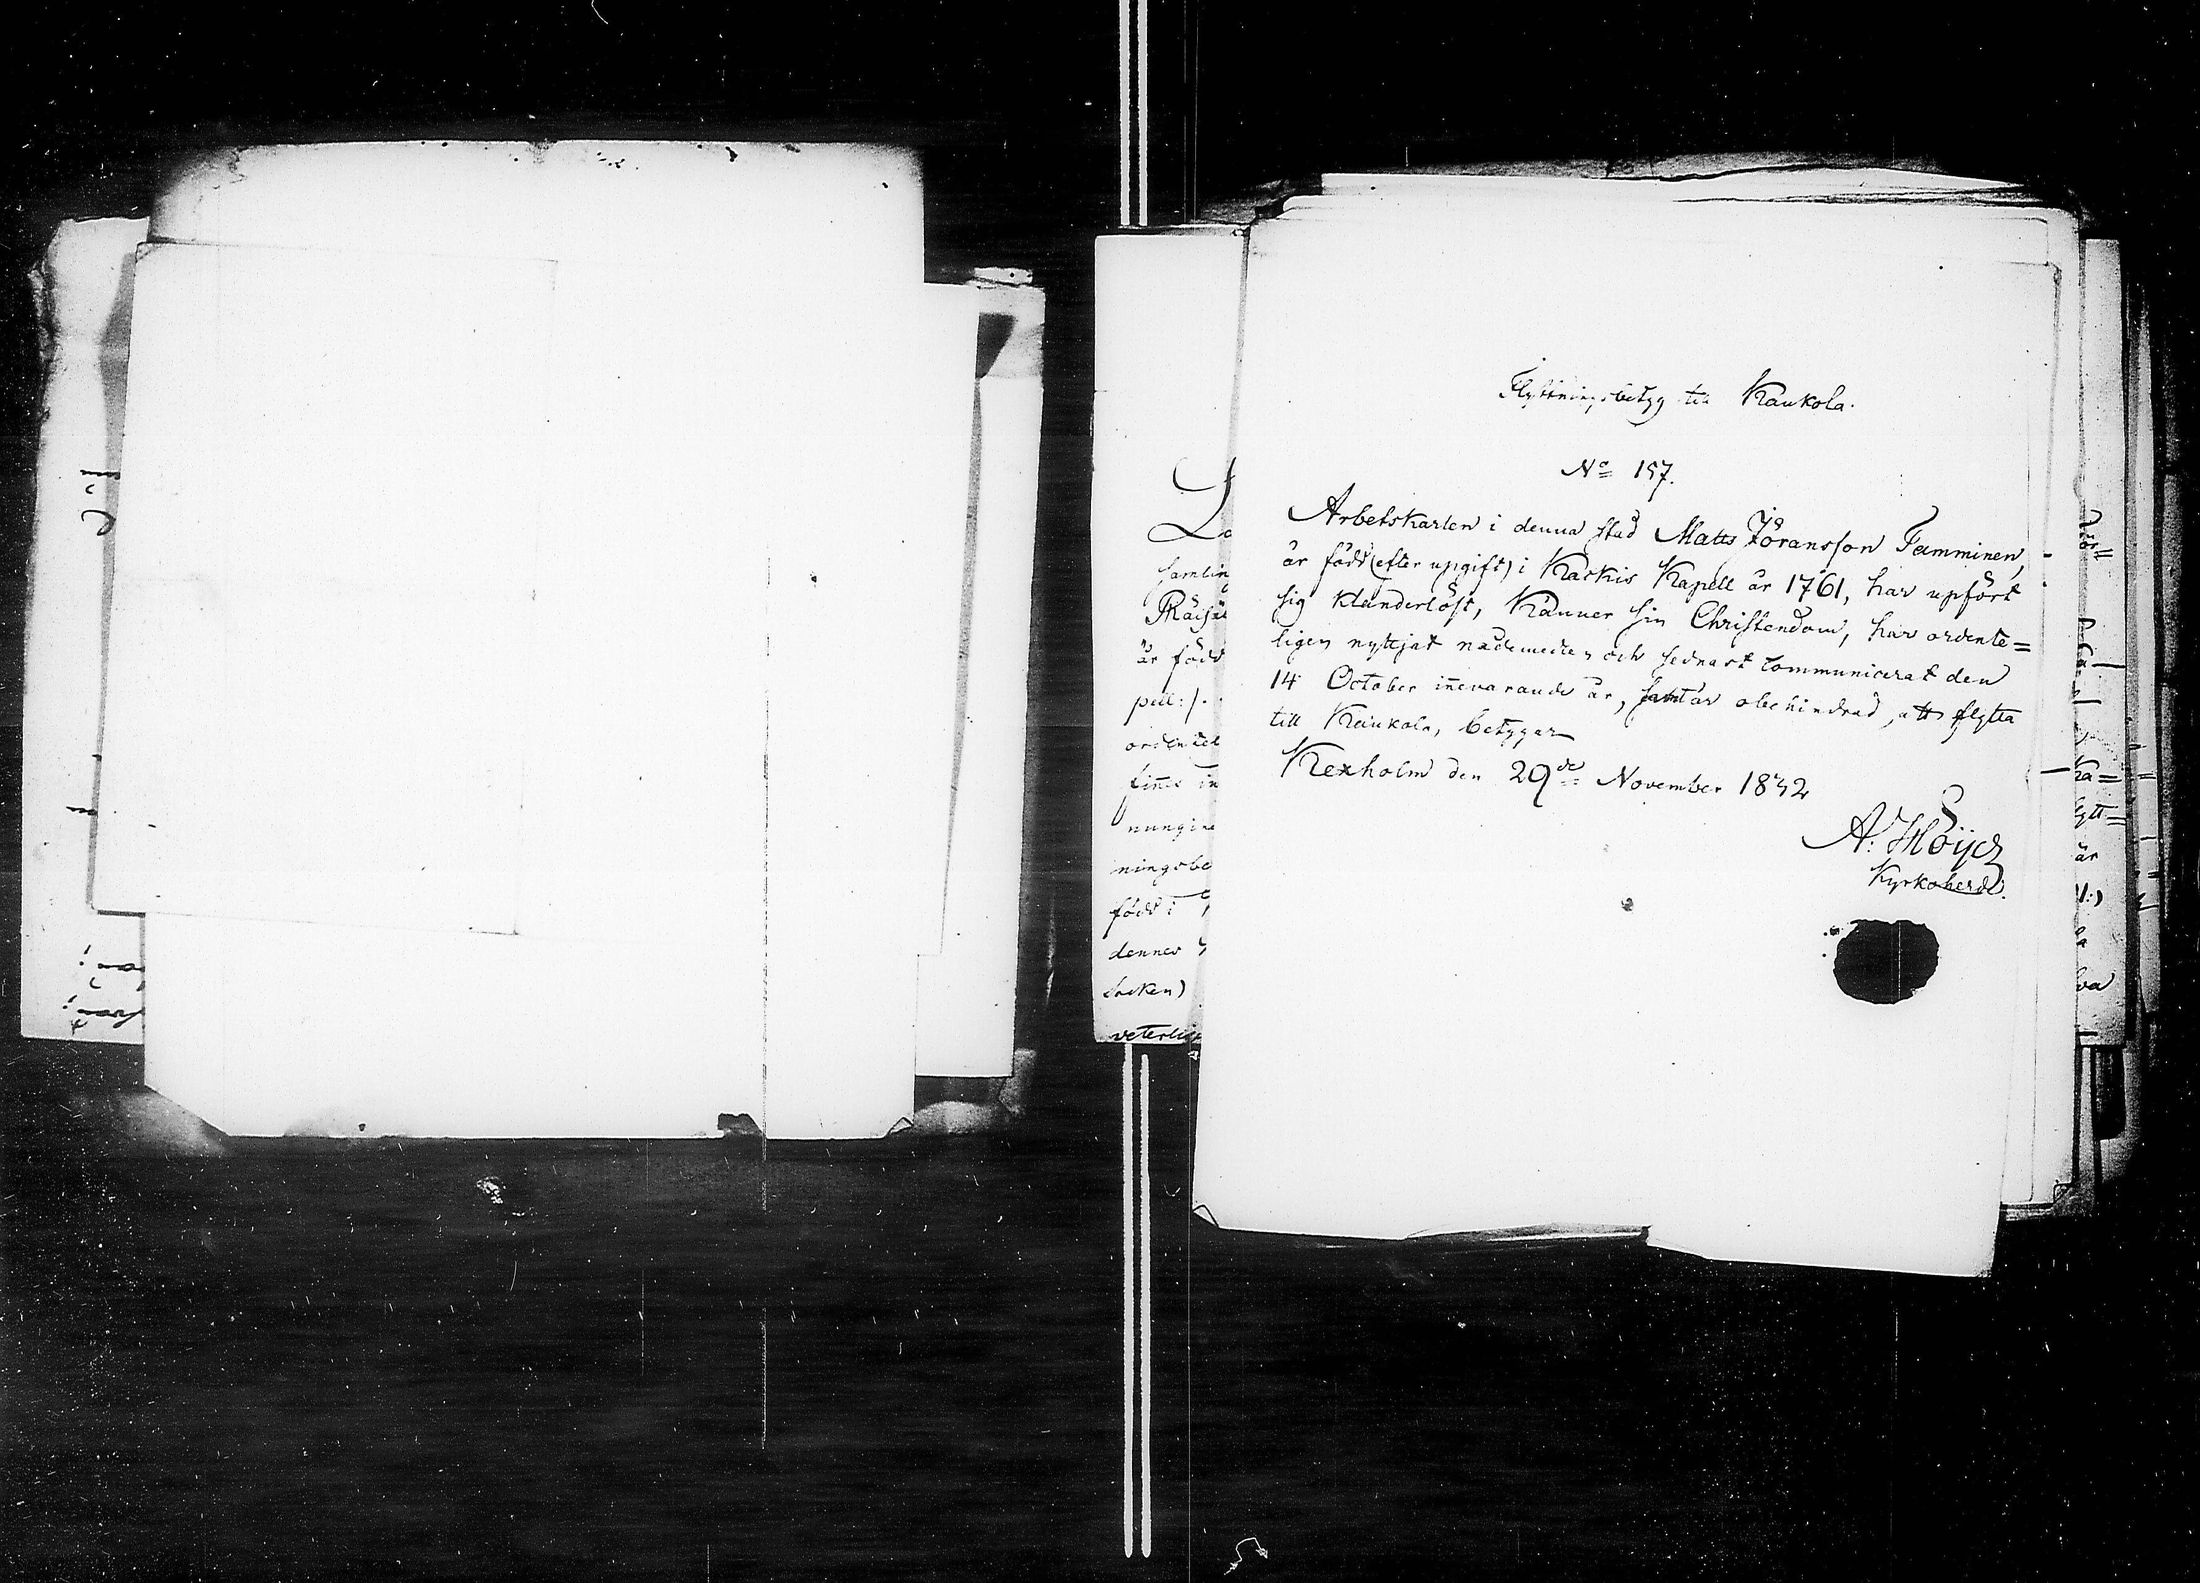 Flyttningsbetyg till Kaukola.
No 157.
Arbetskarlen i denna stad Matts Jöransson Tamminen,
är född (efter upgift) i Kaskis Kapell år 1761, har upfört
sig klanderlöst, känner sin Christendom, har ordente=
ligen nyttjat nådemedlen och sednast communicerat den
14 October innevarande år, samt är obehindrad, att flytta
till Kaukola, betygar
Kexholm den 29de November 1832
A: Höijer
Kyrkoherde.
samlin
är född
pell:).
finnes in
ningsbe
född i
dennes
socken)